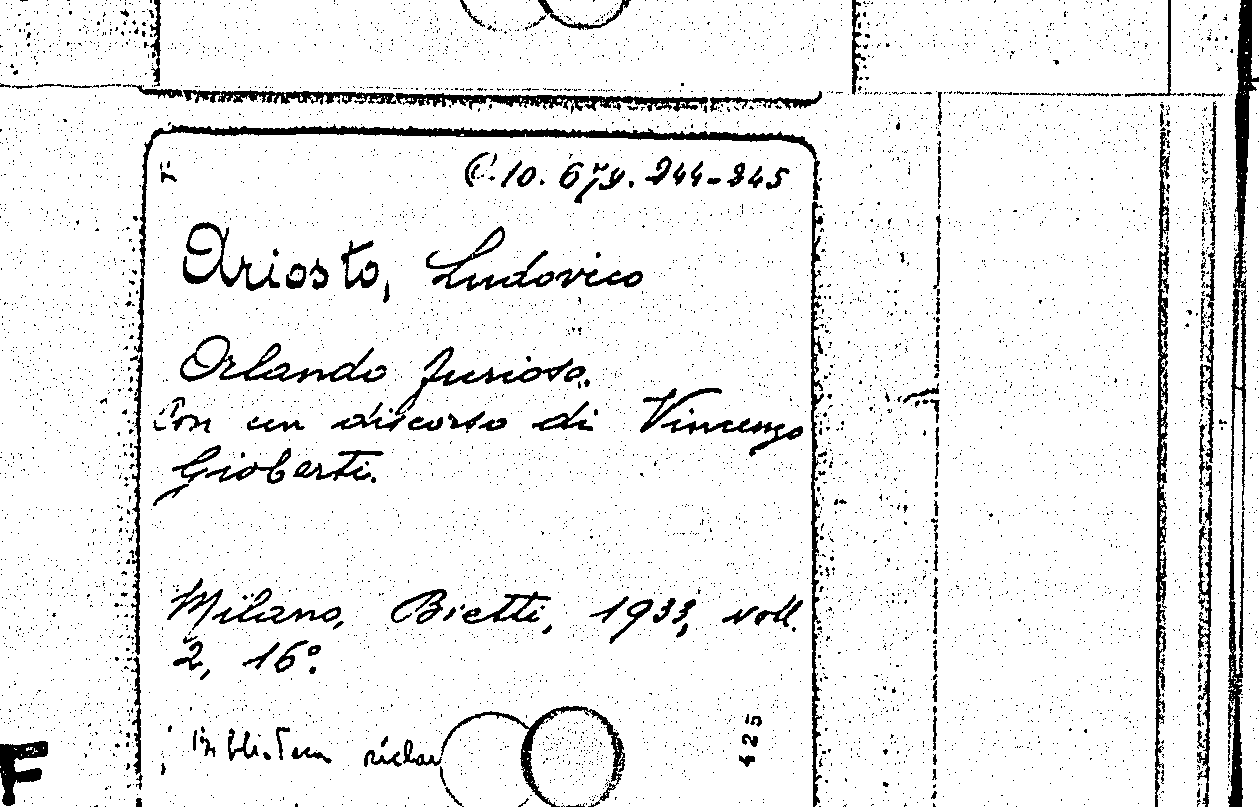 C.10. 679. 244-245
Ariosto, Ludovico
Orlando furioso.
Con un discorso di Vincenzo
Gioberti.
Milano, Bietti, 1933, voll.
2, 16°.
Biblioteca
425
F